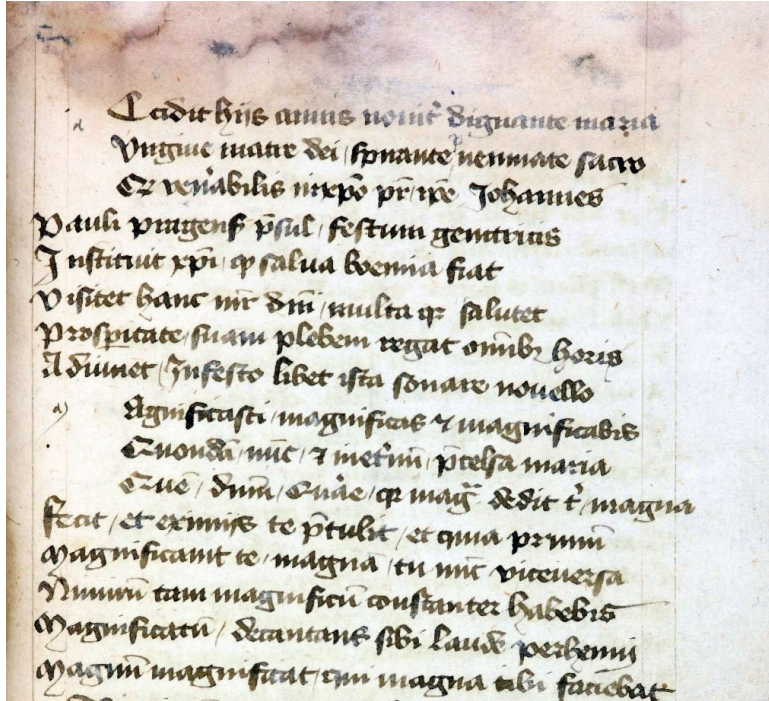 Ccidit hijs annis nouit᷑ dignante maria
Virgine matre dei / spirante neumate sacro
Et ven᷑abilis in xp̄o pr̄ ip̄e Johannes
Pauli pragens̄ p̄sul / festum genitricis
Instituit xp̄i / ꝙ salua boemia fiat
Visitet hanc mr̄ dn̄i / multa qꝫ salutet
Prosp̱itate / suam plebem regat om̄ibꝫ horis
Adiuuet / In festo libet ista sonare nouello
agnificasti / magnificas ⁊ magnificabis
Quondā / nūc / ⁊ inet᷑nū / p̄celsa maria
Quē / dn̄m / Quare / qꝫ mag̅ dedit t᷑ / magna
fecit / et eximijs te p̄tulit / et quia primū
Magnificauit te / magna / tu nūc viceuersa
Nimirū tam magnificū constanter habebis
Magnificatū / decantans sibi laude perhenni
Magnū magnificat / qui magna tibi faciebat